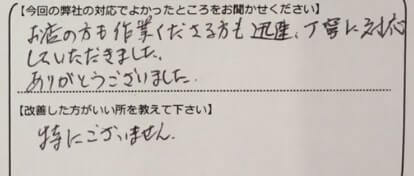 【今回の弊社の対応でよかったところをお聞かせください】
お店の方も作業くださる方も迅速、丁寧に対応
していただきました。
ありがとうございました。
【改善した方がいい所を教えて下さい】
特にございません。